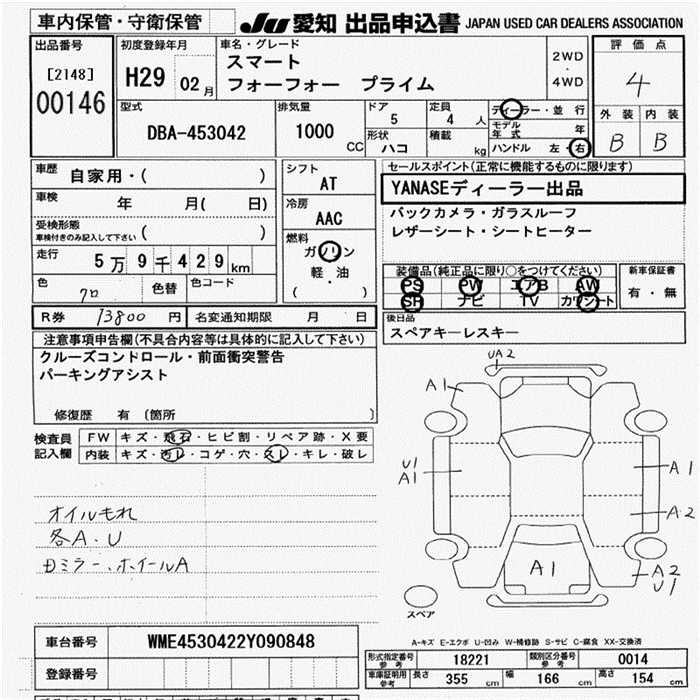 車内保管・守衛保管
JU 愛知 出品申込書 JAPAN USED CAR DEALERS ASSOCIATION
出品番号
[2148]
00146
初度登録年月
H29 02月
車名・グレード
スマート
フォーフォー プライム
2WD
・
4WD
評価点
4
外装 内装
B B
型式
DBA-453042
排気量
1000
CC
ドア
5
定員
4 人
形状
ハコ
積載
kg
ディーラー・並行
モデル年式 年
ハンドル 左・右
車歴
自家用・( )
車検
年 月( 日)
受検形態
車検付きのみ記入して下さい ( )
走行
5万9千429km
色
クロ
色替
色コード
シフト
AT
冷房
AAC
燃料
ガソリン
軽・油
( )
セールスポイント(正常に機能するものに限ります)
YANASEディーラー出品
バックカメラ・ガラスルーフ
レザーシート・シートヒーター
装備品(純正品に限り○をつけてください)
PS PW エアB AW
SR ナビ TV カワシート
新車保証書
有・無
R券 13800 円
名変通知期限 月 日
後日品
スペアキーレスキー
注意事項申告欄(不具合内容等は具体的に記入して下さい)
クルーズコントロール・前面衝突警告
パーキングアシスト
修復歴 有 〔箇所 〕
検査員
記入欄
FW キズ・飛石・ヒビ割・リペア跡・X要
内装 キズ・汚レ・コゲ・穴・スレ・キレ・破レ
オイルもれ
各A・U
ミラー・ホイールA
UA2
A1
U1
A1
A1
A2
A1
A2
U1
スペア
A-キズ E-エクボ U-凹み W-補修跡 S-サビ C-腐食 XX-交換済
車台番号
WME4530422Y090848
登録番号
形式指定番号
参考
18221
類別区分番号
参考
0014
車庫証明用
参考
長さ 355 cm
幅 166 cm
高さ 154 cm